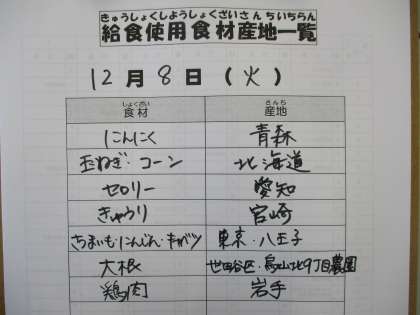 きゅうしょくしようしょくざいさんちいちらん
給食使用食材産地一覧
12月8日(火)
しょくざい さんち
食材 産地
にんにく 青森
玉ねぎ・コーン 北海道
セロリー 愛知
きゅうり 宮崎
さといも・にんじん・キャベツ 東京・八王子
大根 世田谷区・烏山北9丁目農園
鶏肉 岩手